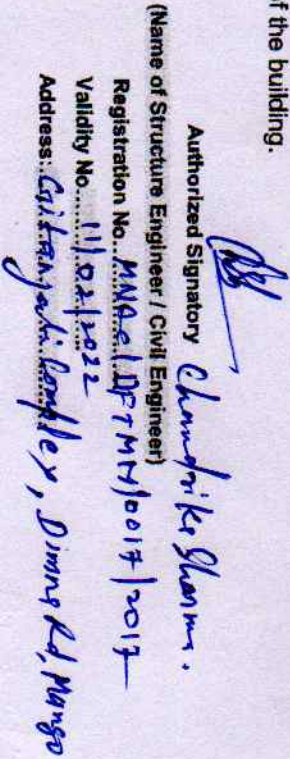 f the building.
Authorized Signatory Chandrika Sharma.
(Name of Structure Engineer / Civil Engineer)
Registration No... MNAC/DFTMH/0017/2017
Validity No......11/02/2022
Address: Gitanjali Complex, Dimna Rd, Mango